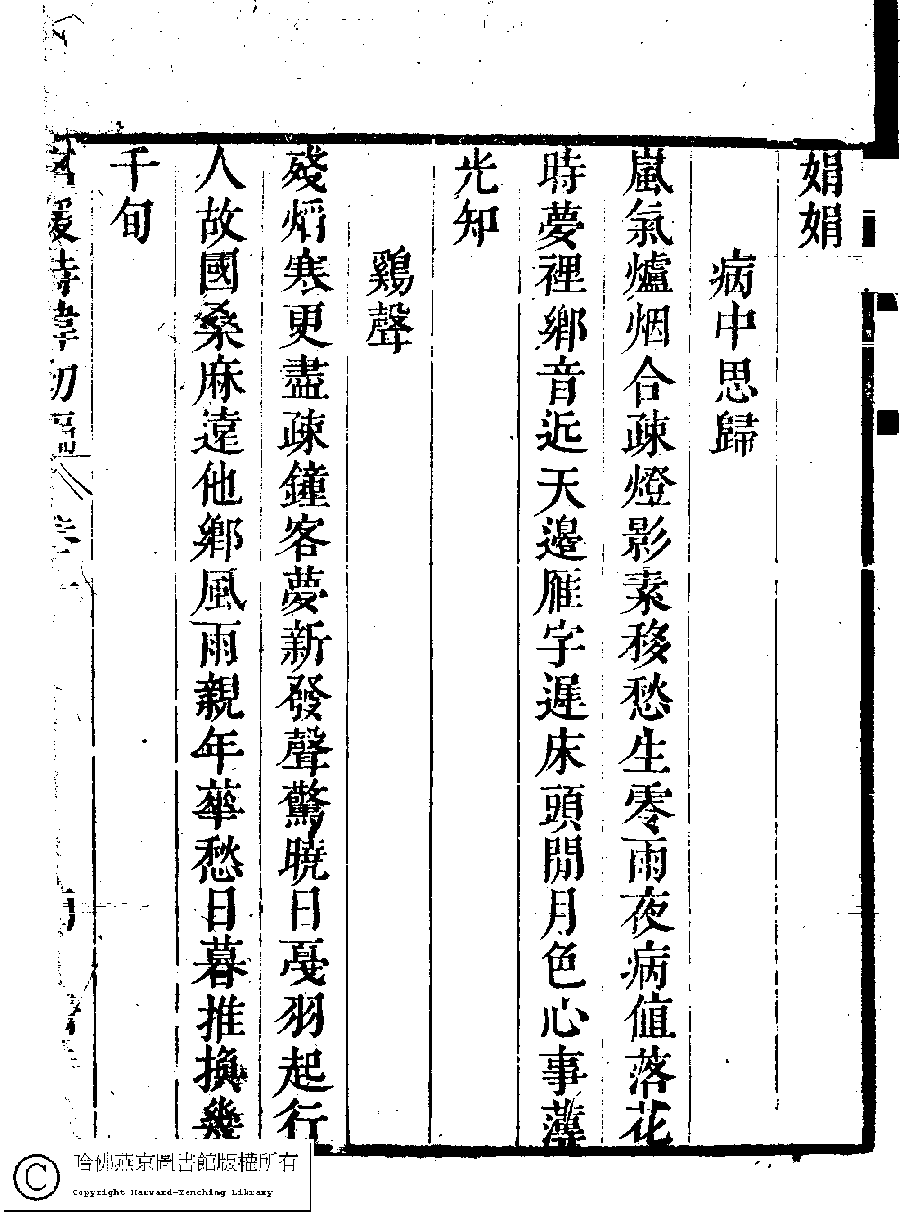 娟娟
病中思歸
嵐氣爐烟合疎燈影素移愁生零雨夜病值落花
時夢裡鄉音近天邉雁字遲床頭閒月色心事
光知
鷄聲
殘熖寒更盡疎鐘客夢新發聲驚曉日戞羽起行
人故國桑麻遠他鄉風雨親年華愁日暮推換幾
千旬
名媛詩緯初編 卷
哈佛燕京圖書館版權所有
Copyright Harvard-Yenching Library